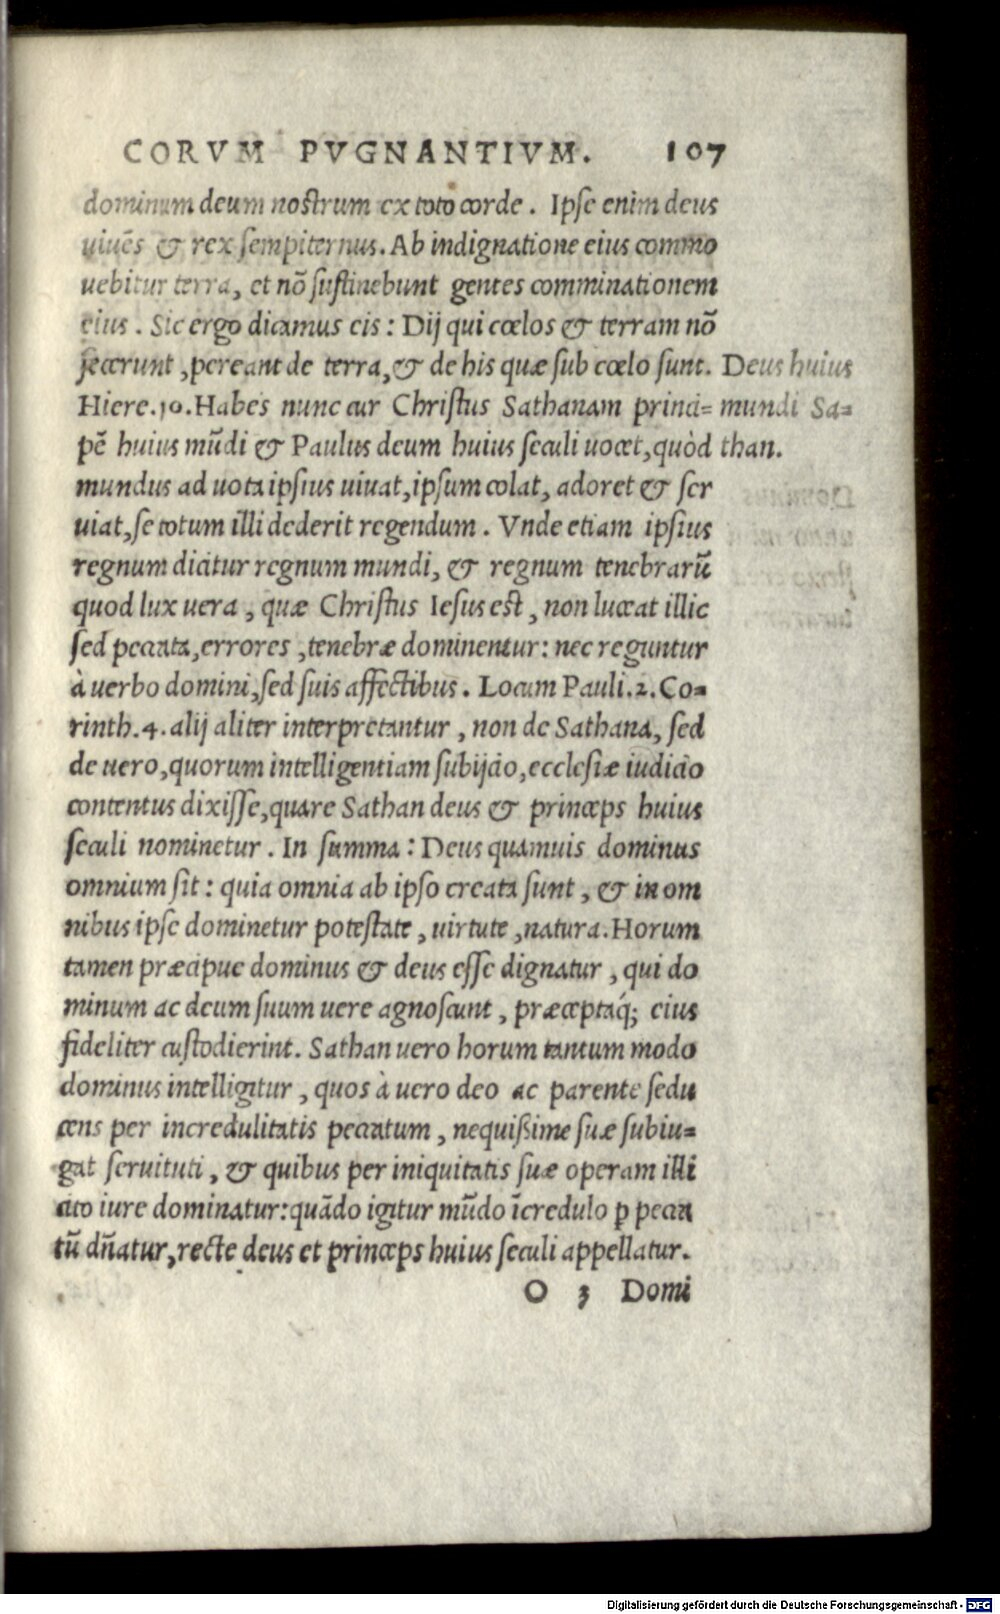 CORVM PVGNANTIVM. 107
dominum deum nostrum ex toto corde. Ipse enim deus
uiuēs & rex sempiternus. Ab indignatione eius commo
uebitur terra, et nō sustinebunt gentes comminationem
eius. Sic ergo dicamus eis: Dij qui cœlos & terram nō
fecerunt, pereant de terra, & de his quæ sub cœlo sunt.
Hiere.10. Habes nunc cur Christus Sathanam princi=
pē huius mūdi & Paulus deum huius seculi uocet, quòd
Deus huius
mundi Sa=
than.
mundus ad uota ipsius uiuat, ipsum colat, adoret & ser
uiat, se totum illi dederit regendum. Vnde etiam ipsius
regnum dicitur regnum mundi, & regnum tenebrarū
quod lux uera, quæ Christus Iesus est, non luceat illic
sed peccata, errores, tenebræ dominentur: nec reguntur
à uerbo domini, sed suis affectibus. Locum Pauli.2.Co=
rinth.4. alij aliter interpretantur, non de Sathana, sed
de uero, quorum intelligentiam subijcio, ecclesiæ iudicio
contentus dixisse, quare Sathan deus & princeps huius
seculi nominetur. In summa: Deus quamuis dominus
omnium sit: quia omnia ab ipso creata sunt, & in om
nibus ipse dominetur potestate, uirtute, natura. Horum
tamen præcipue dominus & deus esse dignatur, qui do
minum ac deum suum uere agnoscunt, præceptaq́; eius
fideliter custodierint. Sathan uero horum tantum modo
dominus intelligitur, quos à uero deo ac parente sedu
cens per incredulitatis peccatum, nequißime suæ subiu=
gat seruituti, & quibus per iniquitatis suæ operam illi
cito iure dominatur: quādo igitur mūdo īcredulo ꝑ pecca
tū dn̄atur, recte deus et princeps huius seculi appellatur.
O 3 Domi
Digitalisierung gefördert durch die Deutsche Forschungsgemeinschaft - DFG